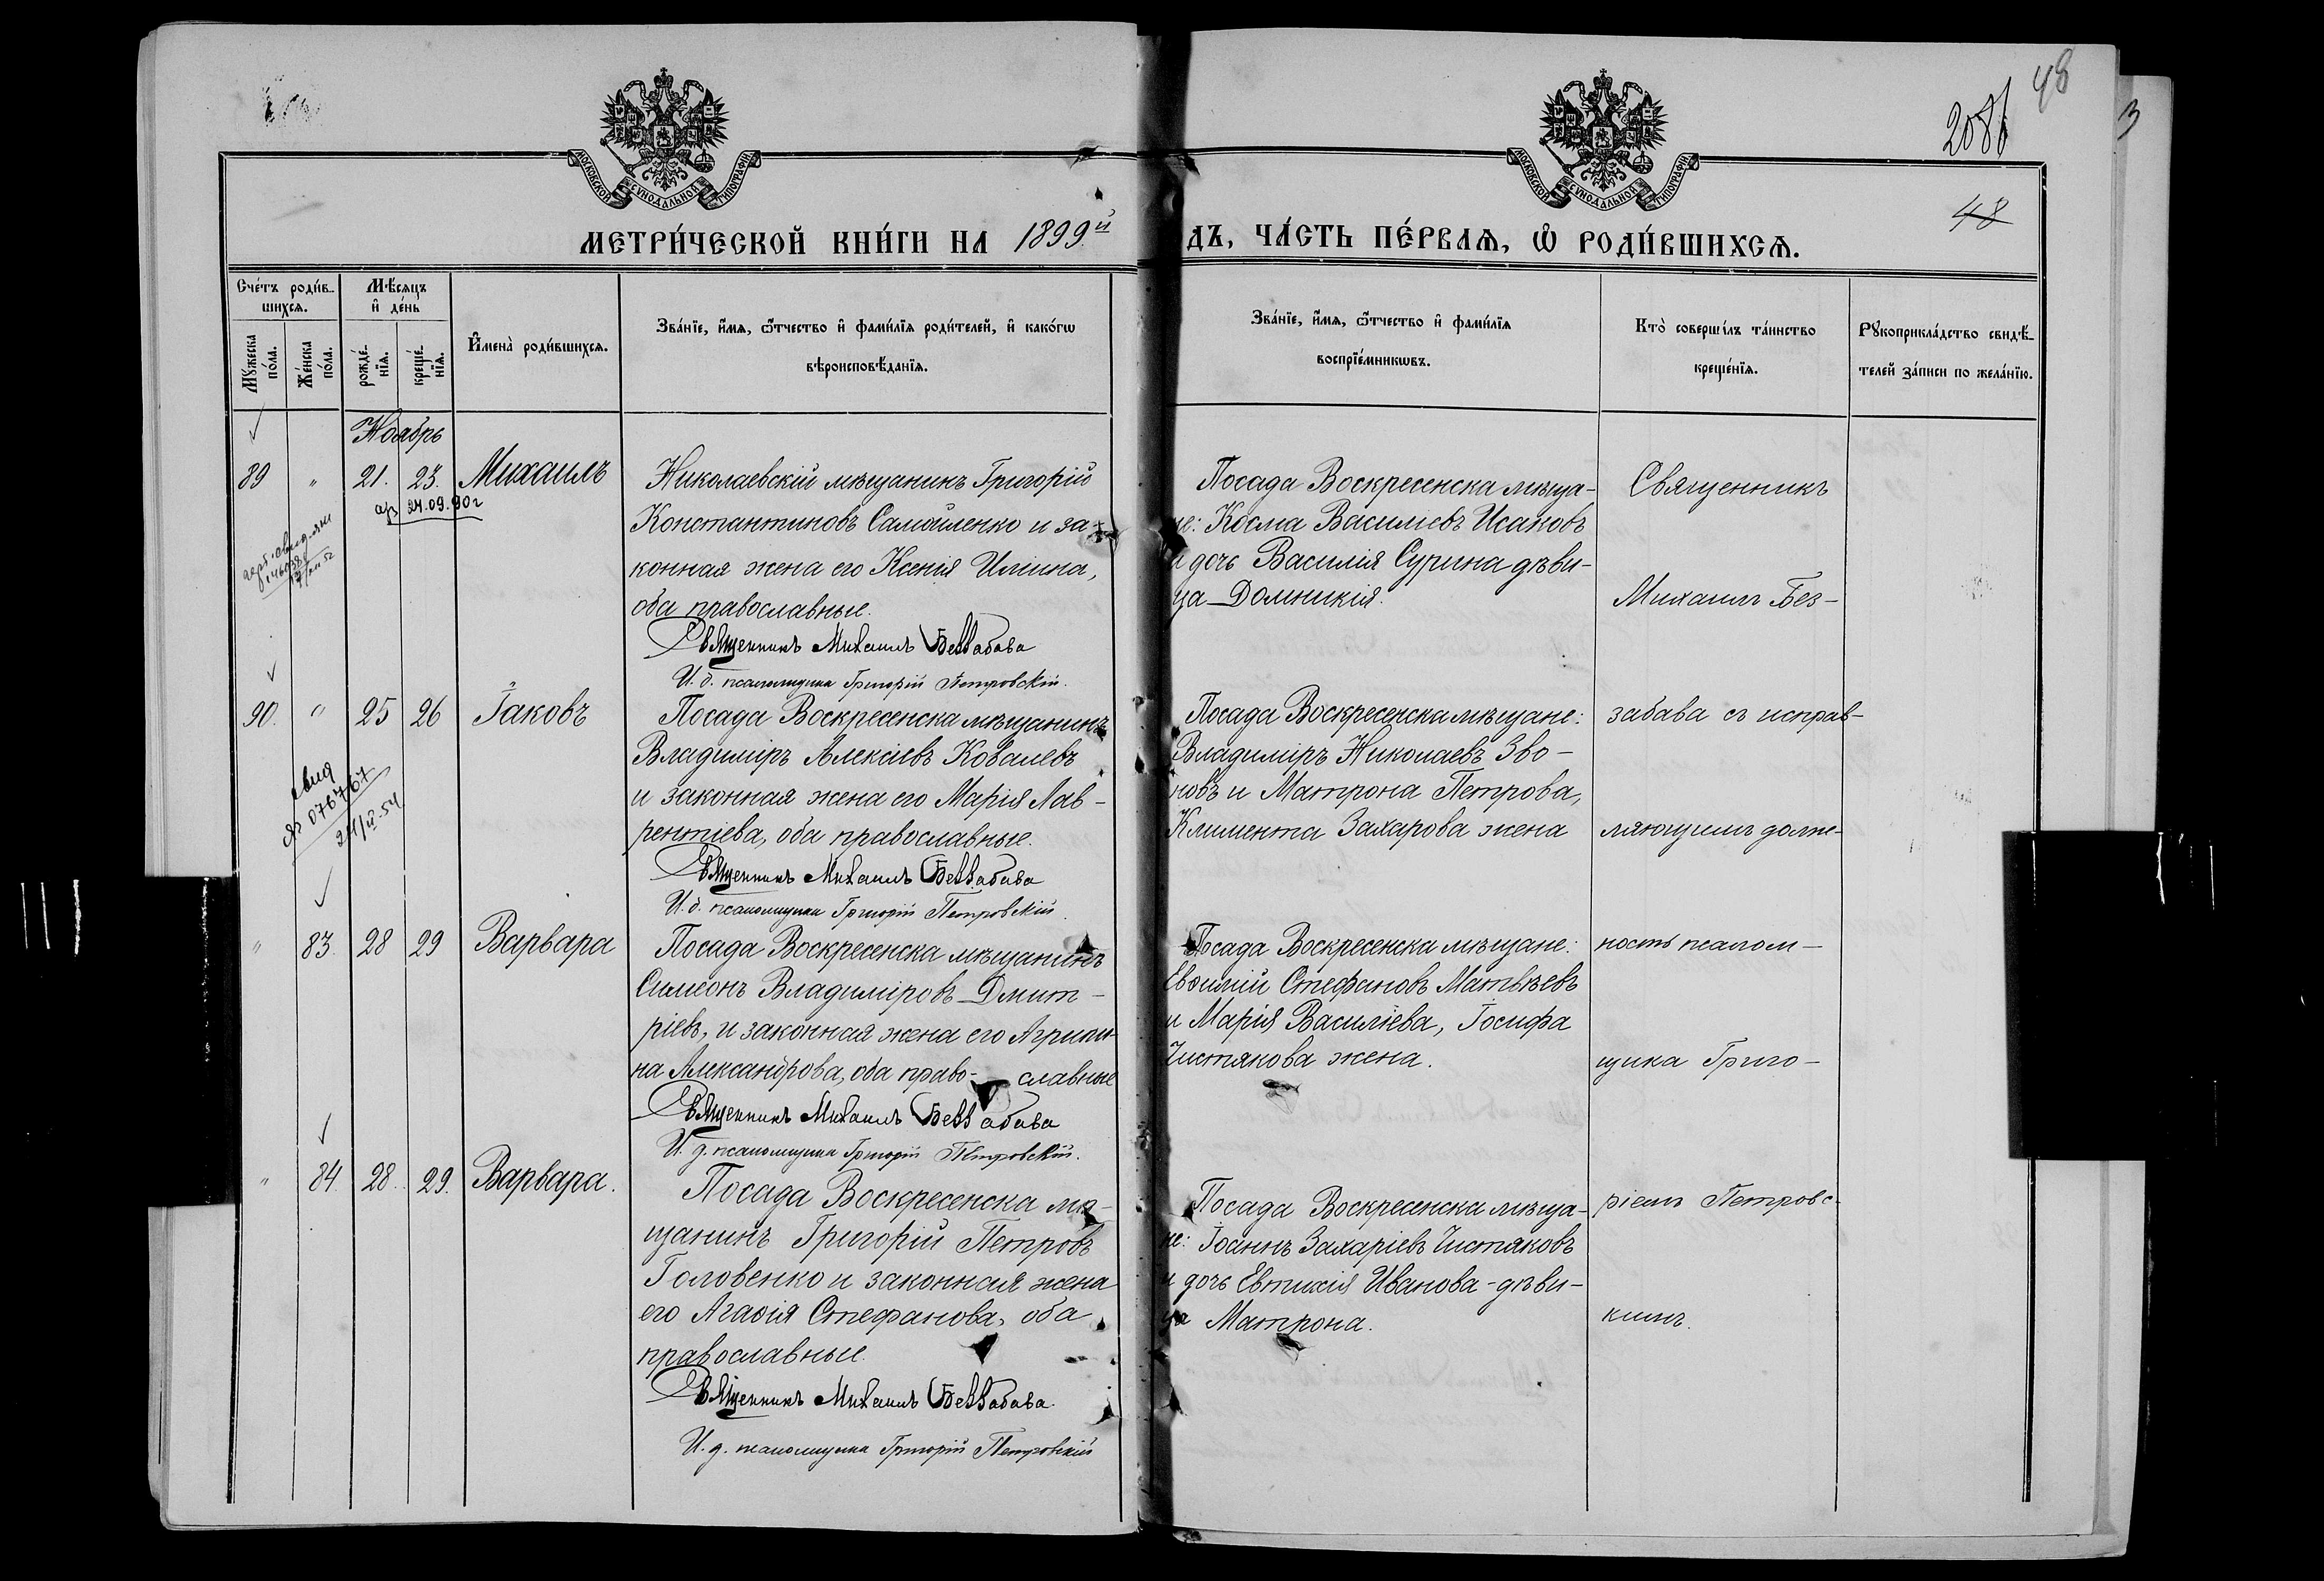 48
208б
3
МОСКОВСКОЙ СѴНОДАЛЬНОЙ ТИПОГРАФІИ
МОСКОВСКОЙ СѴНОДАЛЬНОЙ ТИПОГРАФІИ
48
МЕТРИ́ЧЕСКОЙ КНИ́ГИ НА 1899й
ДЪ, ЧА́СТЬ ПЕ́РВАѦ, Ѽ РОДИ́ВШИХСѦ.
Сче́тъ роди́в-
шихсѧ.
Мꙋжеска по́ла.
Же́нска по́ла.
Мѣ́сѧцъ
и҆ де́нь
рожде́-нїѧ.
креще́-нїѧ.
И҆мена̀ роди́вшихсѧ.
Зва́нїе, и҆́мѧ, ѻ҆́тчество и҆ фами́лїѧ роди́телей, и҆ како́гѡ
вѣроисповѣ́данїѧ.
Зва́нїе, и҆́мѧ, ѻ҆́тчество и҆ фами́лїѧ
воспрїе́мникѡвъ.
Кто̀ соверши́лъ та́инство
креще́нїѧ.
Рꙋкоприкла́дство свидѣ́-
телей за́писи по жела́нїю.
Ноябрь
89 " 21. 23. Михаилъ
24.09.90г
Николаевскій мѣщанинъ Григорій
Константиновъ Самойленко и за-
конная жена его Ксенія Иліина,
оба православные.
Священникъ Михаилъ Беззабава
И. д. псаломщика Григорій Петровскій.
Посада Воскресенска мѣща-
не: Косма Василіевъ Исаковъ
и дочь Василія Сурина дѣви-
ца Домникія.
Священникъ
Михаилъ Без-
90. " 25 26 Іаковъ
свид
076767
Посада Воскресенска мѣщанинъ
Владиміръ Алексіевъ Ковалевъ
и законная жена его Марія Лав-
рентіева, оба православные.
Священникъ Михаилъ Беззабава
И. д. псаломщика Григорій Петровскій.
Посада Воскресенска мѣщане:
Владиміръ Николаевъ Зво-
новъ и Матрона Петрова,
Климента Захарова жена
забава съ исправ-
ляющимъ долж-
" 83. 28 29 Варвара
Посада Воскресенска мѣщанинъ
Симеонъ Владиміровъ Дмит-
ріевъ, и законная жена его Агрипи-
на Александрова, оба право- славные
Священникъ Михаилъ Беззабава
И. д. псаломщика Григорій Петровскій.
Посада Воскресенска мѣщане:
Евѳимій Стефановъ Матвѣевъ
и Марія Василіева, Іосифа
Чистякова жена.
ность псалом-
щика Григо-
" 84. 28. 29. Варвара.
Посада Воскресенска мѣ-
щанинъ Григорій Петровъ
Головенко и законная жена
его Агаѳія Стефанова, оба
православные.
Священникъ Михаилъ Беззабава.
И. д. псаломщика Григорій Петровскій
Посада Воскресенска мѣща-
не: Іоаннъ Захаріевъ Чистяковъ
и дочь Евтихія Иванова-дѣви-
ца Матрона.
ріемъ Петровс-
кимъ.